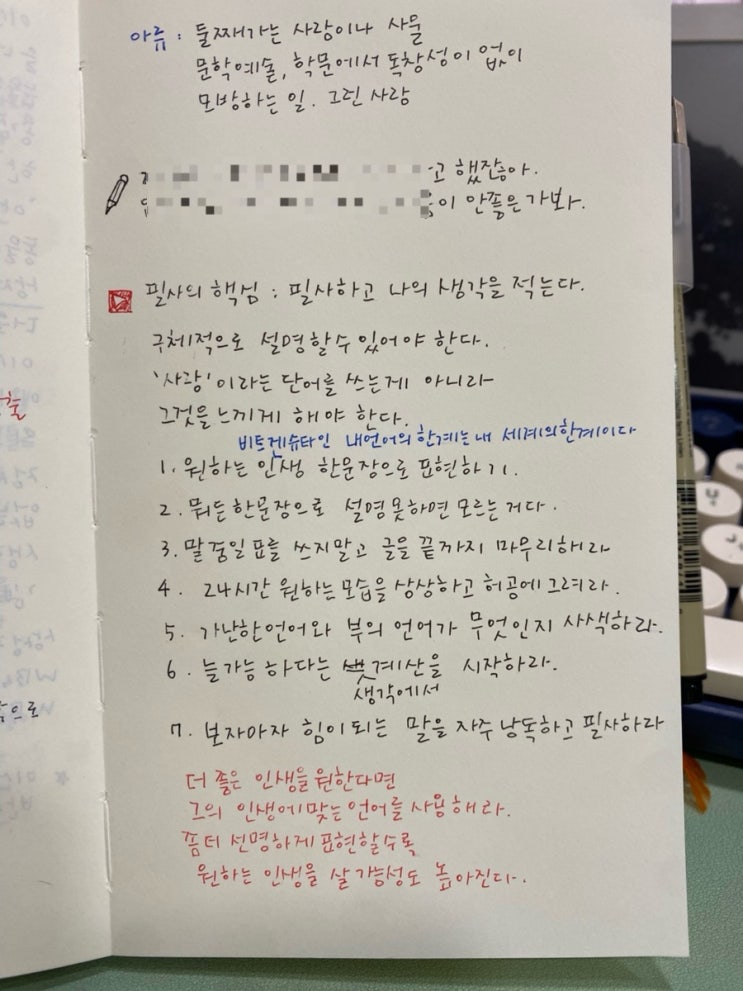 아류 : 둘째가는 사람이나 사물
문학예술, 학문에서 독창성이 없이
모방하는 일. 그런 사람
고 했잖아.
이 안좋은가봐.
필사의 핵심 : 필사하고 나의 생각을 적는다.
구체적으로 설명할수 있어야 한다.
'사랑'이라는 단어를 쓰는게 아니라
그것을 느끼게 해야 한다.
비트겐슈타인 내언어의 한계는 내 세계의 한계이다
1. 원하는 인생 한문장으로 표현하기.
2. 뭐든 한문장으로 설명 못하면 모르는 거다.
3. 말줄임표를 쓰지말고 글을 끝까지 마무리해라
4. 24시간 원하는 모습을 상상하고 허공에 그려라.
5. 가난한 언어와 부의 언어가 무엇인지 사색하라.
6. 늘 가능 하다는 계산을 시작하라.
생각에서
7. 보자마자 힘이 되는 말을 자주 낭독하고 필사하라
더 좋은 인생을 원한다면
그의 인생에 맞는 언어를 사용해라.
좀더 선명하게 표현할수록
원하는 인생을 살 가능성도 높아진다.